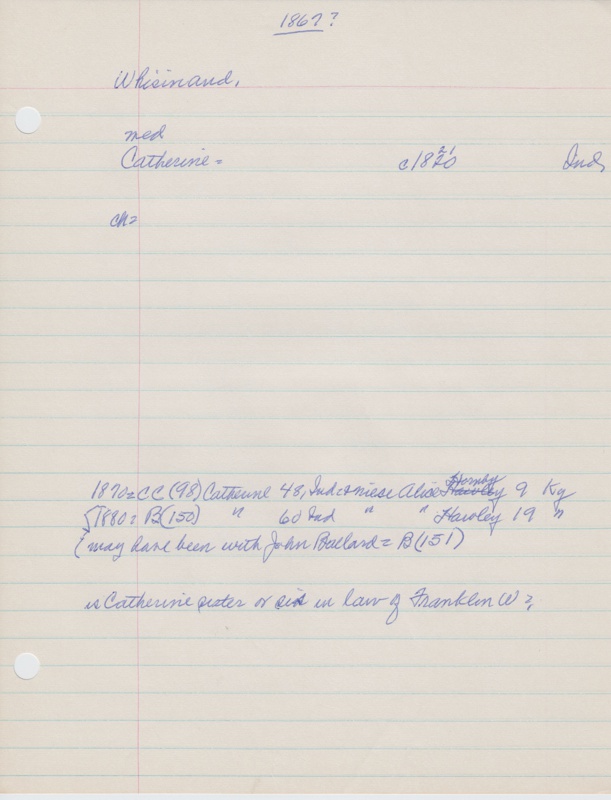 1867?
Whisinand,
med
Catherine = c1820 21 Ind,
ch=
1870=CC(98) Catherine 48, Ind + niese Alice Hawley Hornby 9 Ky
1880= B(150) " 60 Ind " " Hawley 19 "
(may have been with John Ballard = B(151)
is Catherine sister or sis in law of Franklin W?